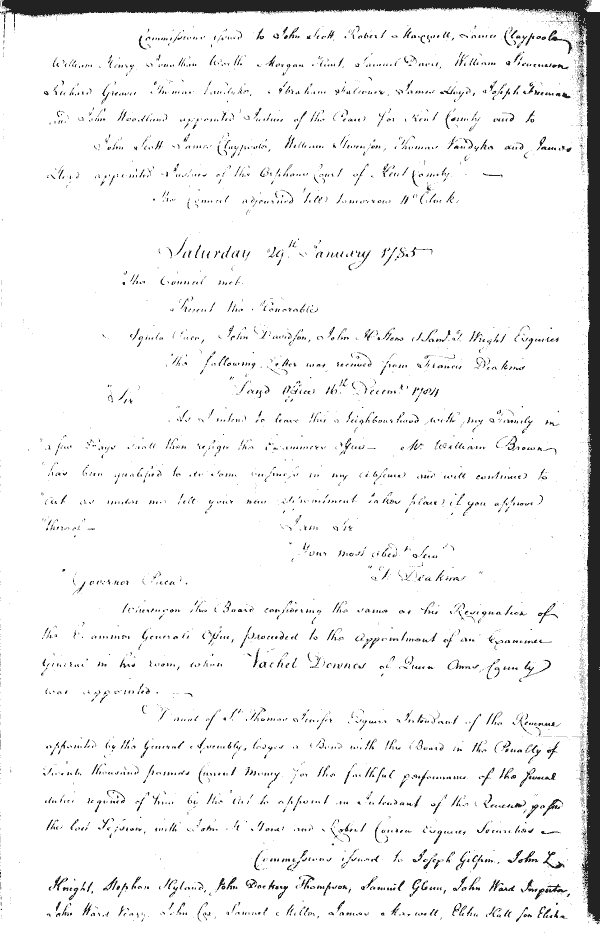 Commissions issued to John Scott, Robert Maxwell, James Claypoole
William Henry Jonathan Worth Morgan Hurt, Samuel Davis, William Stevenson
Richard Gresham Thomas Vandyke, Abraham Falconer, James Lloyd, Joseph Freeman
and John Woodland appointed Justices of the Peace for Kent County and to
John Scott James Claypoole, William Stevenson, Thomas Vandyke and James
Lloyd appointed Justices of the Orphans Court of Kent County. —
The Council adjourned till tomorrow 4 oClock.
Saturday 29th January 1785
The Council met.
Present the Honorable
John Davidson, John H Stone & Saml T. Wright Esquires
The following Letter was received from Francis Deakins
"Sir "Land Office 16th Decemr 1784
As I intend to leave this Neighbourhood with my Family in
a few Days shall then resign the Examiners Office — Mr William Brown
"has been qualified to do some business in my absence and will continue to
"act as under me till your new appointment takes place if you approve
"thereof — I am Sir
"Your most obedt Servt
"Governor Paca. "F. Deakins"
Whereupon the Board considering the same as his Resignation of
the Examiner Generals Office, proceeded to the Appointment of an Examiner
General in his room, when Vachel Downes of Queen Anns County
was appointed. —
Daniel of St Thomas Jenifer Esquire Intendant of the Revenue
appointed by the General Assembly, lodges a Bond with this Board in the Penalty of
thousand pounds Current Money for the faithful performance of the several
duties required of him by the Act to appoint an Intendant of the Revenue, passed
the last Session, with John H Stone and Robert Couden Esquires Securities —
Commissions issued to Joseph Gilpin, John L
Knight, Stephen Hyland, John Dockery Thompson, Samuel Glenn, John Ward
John Ward Veazy, John Cox, Samuel Miller, James Maxwell, Elihu Hall son Elisha